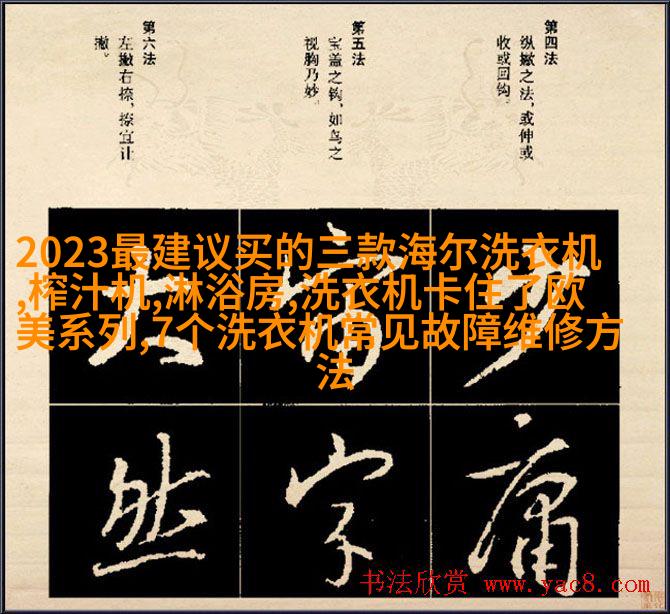 第四法
纵撇之法，或伸或
收或回钩。
第五法
宝盖之钩，如鸟之
视胸乃妙。
第六法
左撇右捺，捺宜让
撇。
2023最建议买的三款海尔洗衣机
,榨汁机,淋浴房,洗衣机卡住了欧
美系列,7个洗衣机常见故障维修方
法
然 字 庸
书法欣赏 www.yac8.com